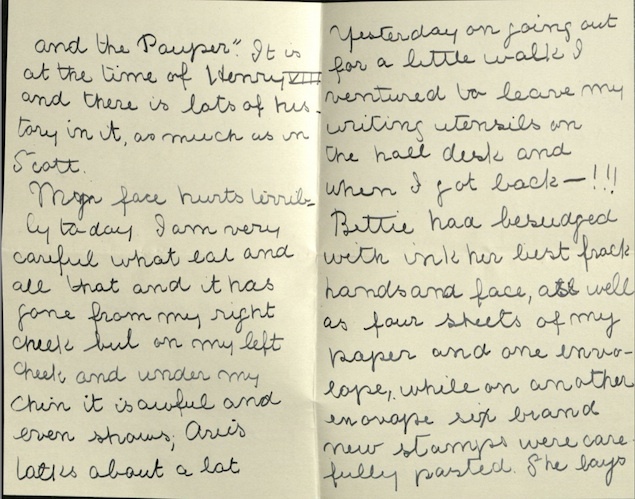 and the Pauper". It is
at the time of Henry VIII
and there is lots of his-
tory in it, as much as in
Scott.
My face hurts terrib=
ly to-day I am very
careful what eat and
all that and it has
gone from my right
cheek but on my left
cheek and under my
chin it is awful and
even shows;
talks about a lot
Yesterday on going out
for a little walk I
ventured to leave my
writing utensils on
the hall desk and
when I got back—!!!
Bettie had besudged
with ink her best frock
hands and face, as well
as four sheets of my
paper and one envo-
lope, while on another
enovape six brand
new stamps were care-
fully pasted. She says